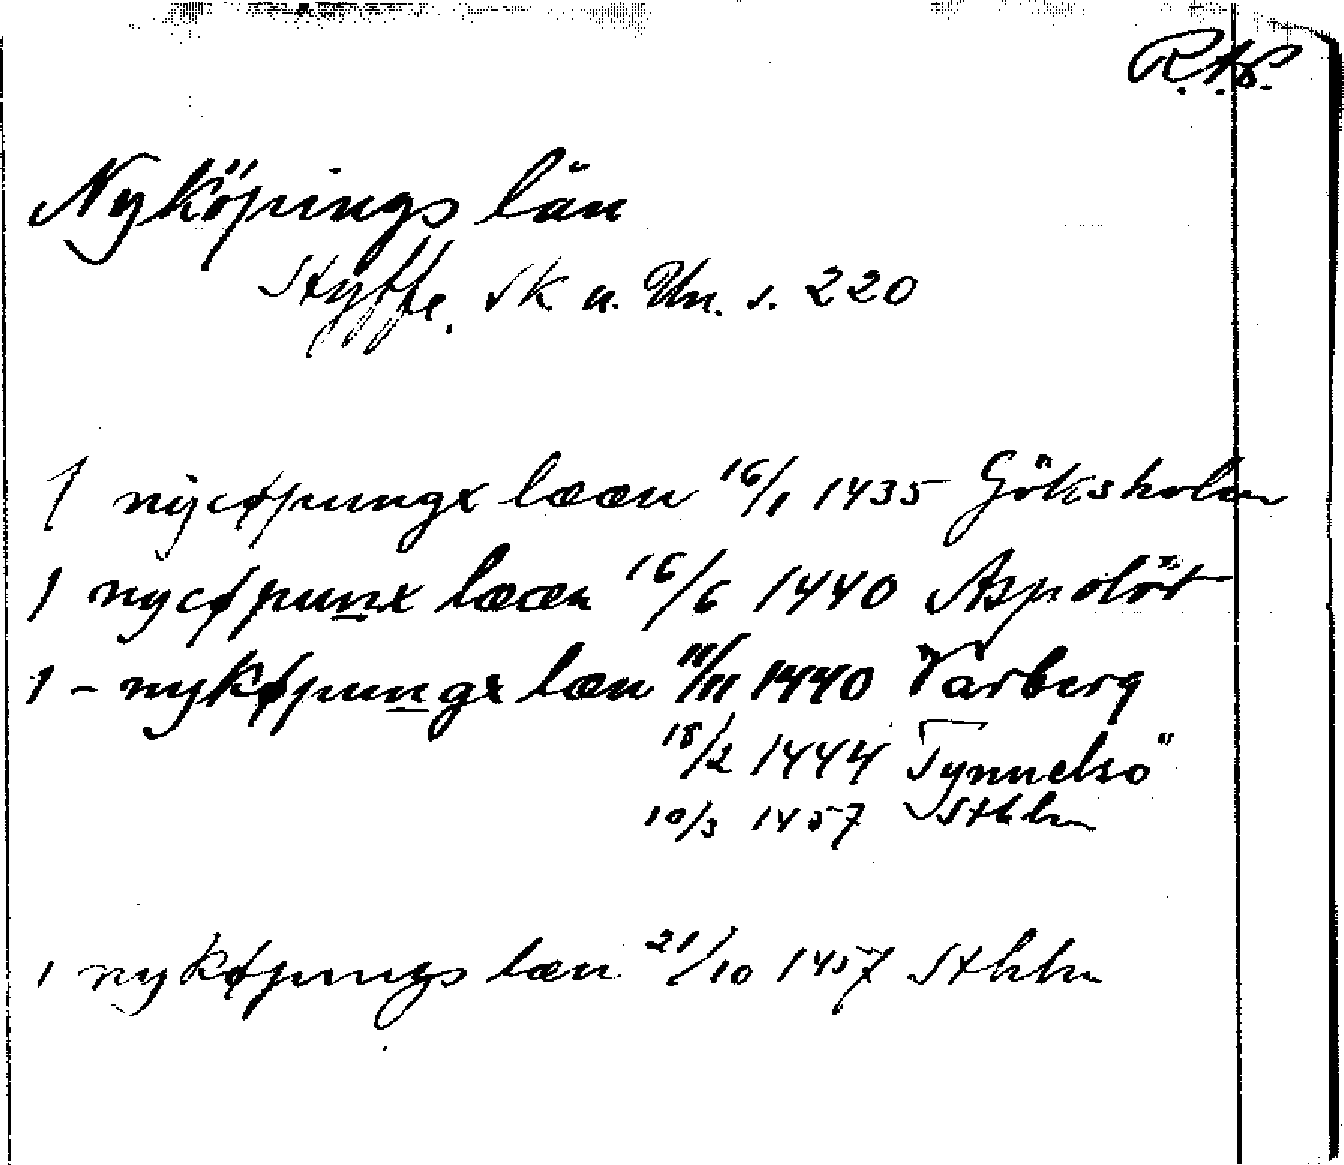 R.A.P.
Nyköpings län
Styffe. Sk u. Un. s. 220
J nycøpungx lææn 16/1 1435 Göksholm
J nycøpunx lææn 16/6 1440 Aspolöt
J - nykøpungx læn 11/11 1440 Varberg
18/2 1444 Tynnelsö
10/3 1457 Sthlm
J nykøpungs læn 21/10 1457 Sthlm